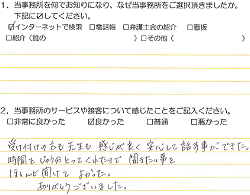 1. 当事務所を何でお知りになり、なぜ当事務所をご選択頂きましたか。
下記に☑してください。
☑インターネットで検索 □電話帳 □弁護士会の紹介 □看板
□紹介（誰の ）□その他（ ）
2. 当事務所のサービスや接客について感じたことをご記入ください。
□非常に良かった ☑良かった □普通 □悪かった
受付けの方も先生も感じが良く安心して話す事ができました。
時間をじっくりとってくれたので聞きたい事を
ほとんど聞けてよかった。
ありがとうございました。